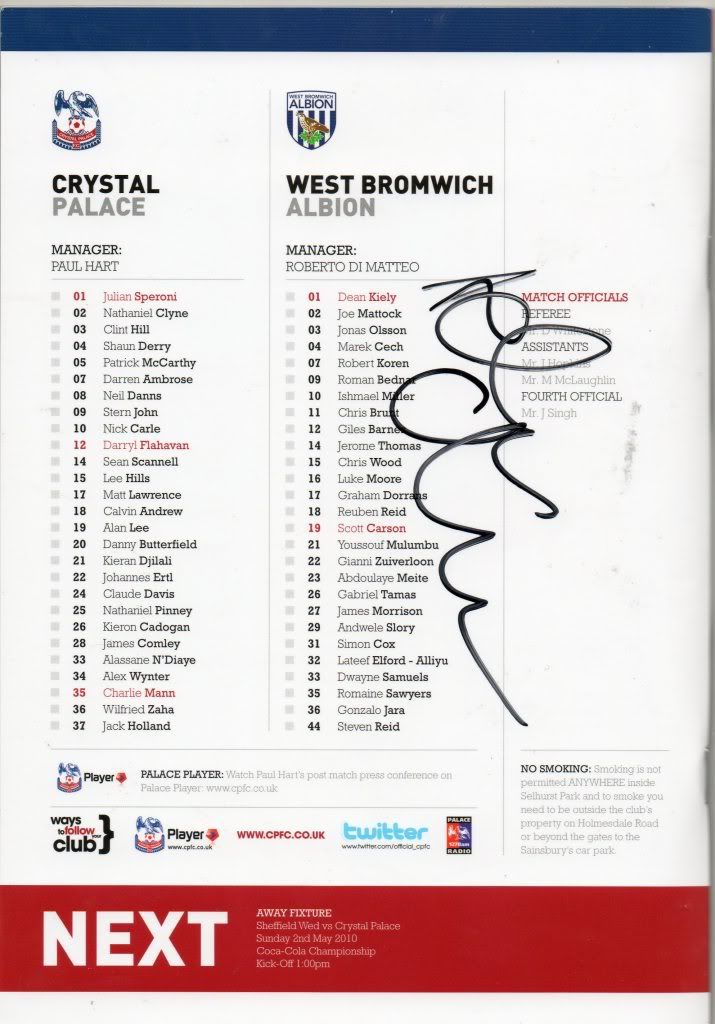 CRYSTAL
PALACE
MANAGER:
PAUL HART
01 Julian Speroni
02 Nathaniel Clyne
03 Clint Hill
04 Shaun Derry
05 Patrick McCarthy
07 Darren Ambrose
08 Neil Danns
09 Stern John
10 Nick Carle
12 Darryl Flahavan
14 Sean Scannell
15 Lee Hills
17 Matt Lawrence
18 Calvin Andrew
19 Alan Lee
20 Danny Butterfield
21 Kieran Djilali
22 Johannes Ertl
24 Claude Davis
25 Nathaniel Pinney
26 Kieron Cadogan
28 James Comley
33 Alassane N'Diaye
34 Alex Wynter
35 Charlie Mann
36 Wilfried Zaha
37 Jack Holland
WEST BROMWICH
ALBION
WEST BROMWICH
ALBION
MANAGER:
ROBERTO DI MATTEO
01 Dean Kiely
02 Joe Mattock
03 Jonas Olsson
04 Marek Cech
07 Robert Koren
09 Roman Bednar
10 Ishmael Miller
11 Chris Brunt
12 Giles Barnes
14 Jerome Thomas
15 Chris Wood
16 Luke Moore
17 Graham Dorrans
18 Reuben Reid
19 Scott Carson
21 Youssouf Mulumbu
22 Gianni Zuiverloon
23 Abdoulaye Meite
26 Gabriel Tamas
27 James Morrison
29 Andwele Slory
31 Simon Cox
32 Lateef Elford - Alliyu
33 Dwayne Samuels
35 Romaine Sawyers
36 Gonzalo Jara
44 Steven Reid
MATCH OFFICIALS
REFEREE
Mr. D
ASSISTANTS
Mr. J Hopkins
Mr. M McLaughlin
FOURTH OFFICIAL
Mr. J Singh
Player
PALACE PLAYER: Watch Paul Hart's post match press conference on
Palace Player: www.cpfc.co.uk
ways
to follow
your
club
Player
www.cpfc.co.uk
WWW.CPFC.CO.UK
twitter
www.twitter.com/official_cpfc
PALACE
1278am
RADIO
NO SMOKING: Smoking is not
permitted ANYWHERE inside
Selhurst Park and to smoke you
need to be outside the club's
property on Holmesdale Road
or beyond the gates to the
Sainsbury's car park.
NEXT
AWAY FIXTURE
Sheffield Wed vs Crystal Palace
Sunday 2nd May 2010
Coca-Cola Championship
Kick-Off 1:00pm